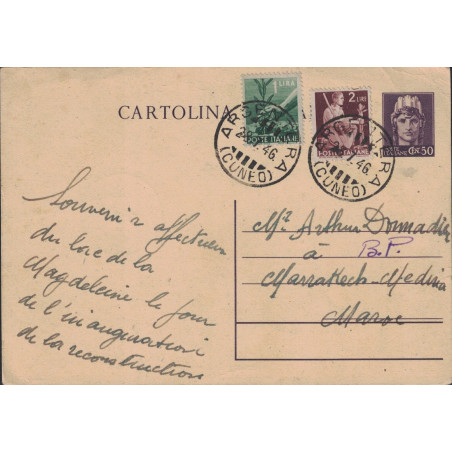 CARTOLINA
1 LIRA
POSTE ITALIANE
2 LIRE
POSTE ITALIANE
POSTE ITALIANE CEN. 50
ARGENTERA
46
(CUNEO)
ARGENTERA
46
(CUNEO)
Souvenir affectueux
du lac de la
Magdeleine le jour
de l'inauguration
de la reconstruction
Mr Arthur Donnadieu
à B.P.
Marrakech-Medina
Maroc